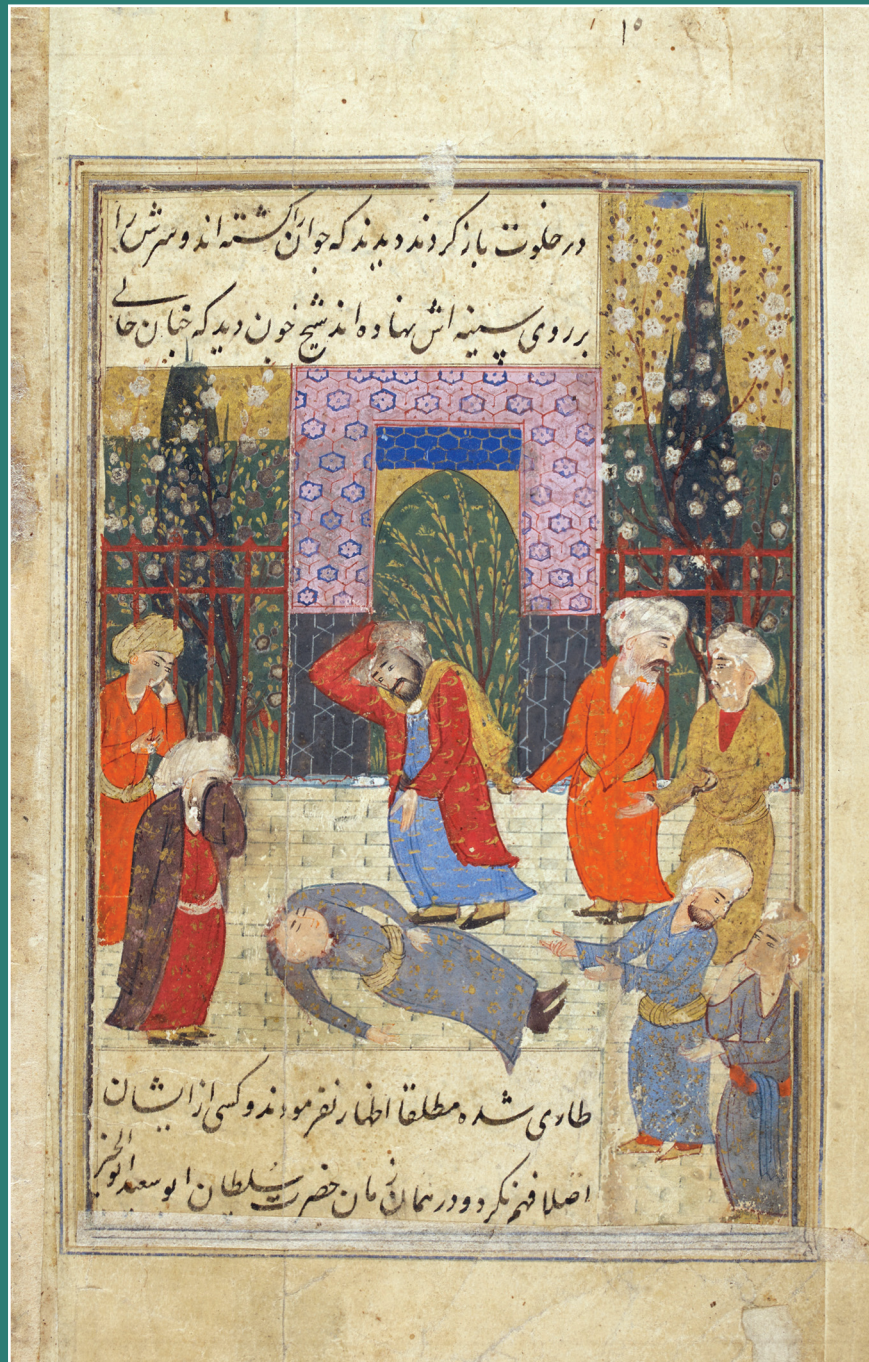 ۱۵
در خلوت باز کردند دیدند که جوان را کشته اند و سرش را
بر روی سینه اش نهاده اند شیخ چون دید که چنان حالی
طاری شده مطلقا اظهار نفرمودند و کسی از ایشان
اصلا فهم نکرد و در همان زمان حضرت سلطان ابو سعید ابوالخیر